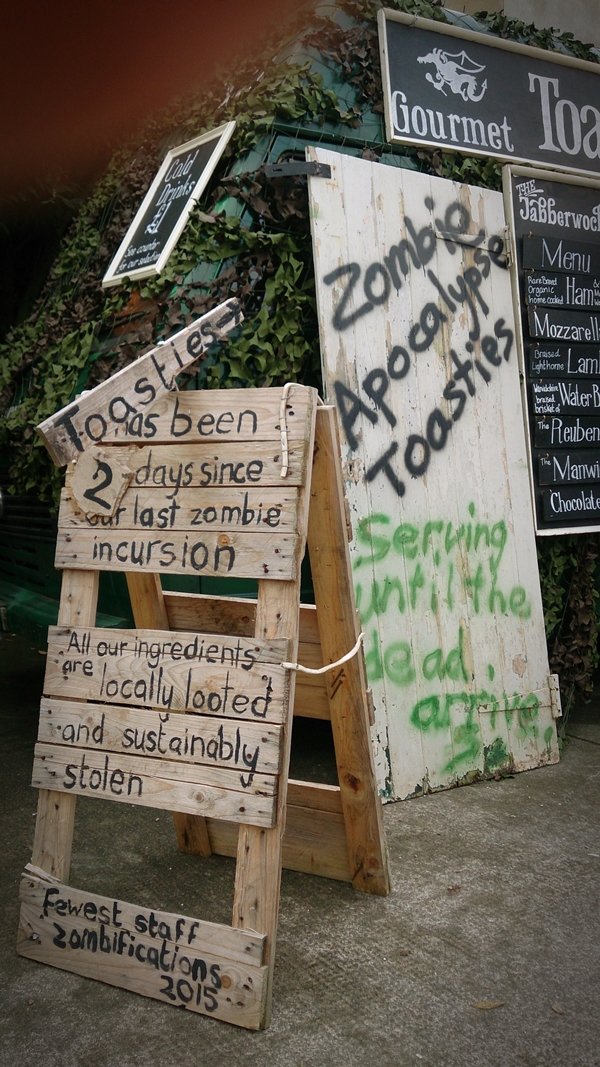 Gourmet
Cold
Drinks
£1
See counter
for our selection
Zombie
Apocalypse
Toasties
THE
Menu
Rare Breed
Organic
home cooked
Braised
Lighthorne
brisket of
The Reuben
The
Chocolate
Toasties →
has been
2 days since
our last zombie
incursion
All our ingredients
are locally looted
and sustainably
stolen
Fewest staff
zombifications
2015
Serving
until the
dead
arrive